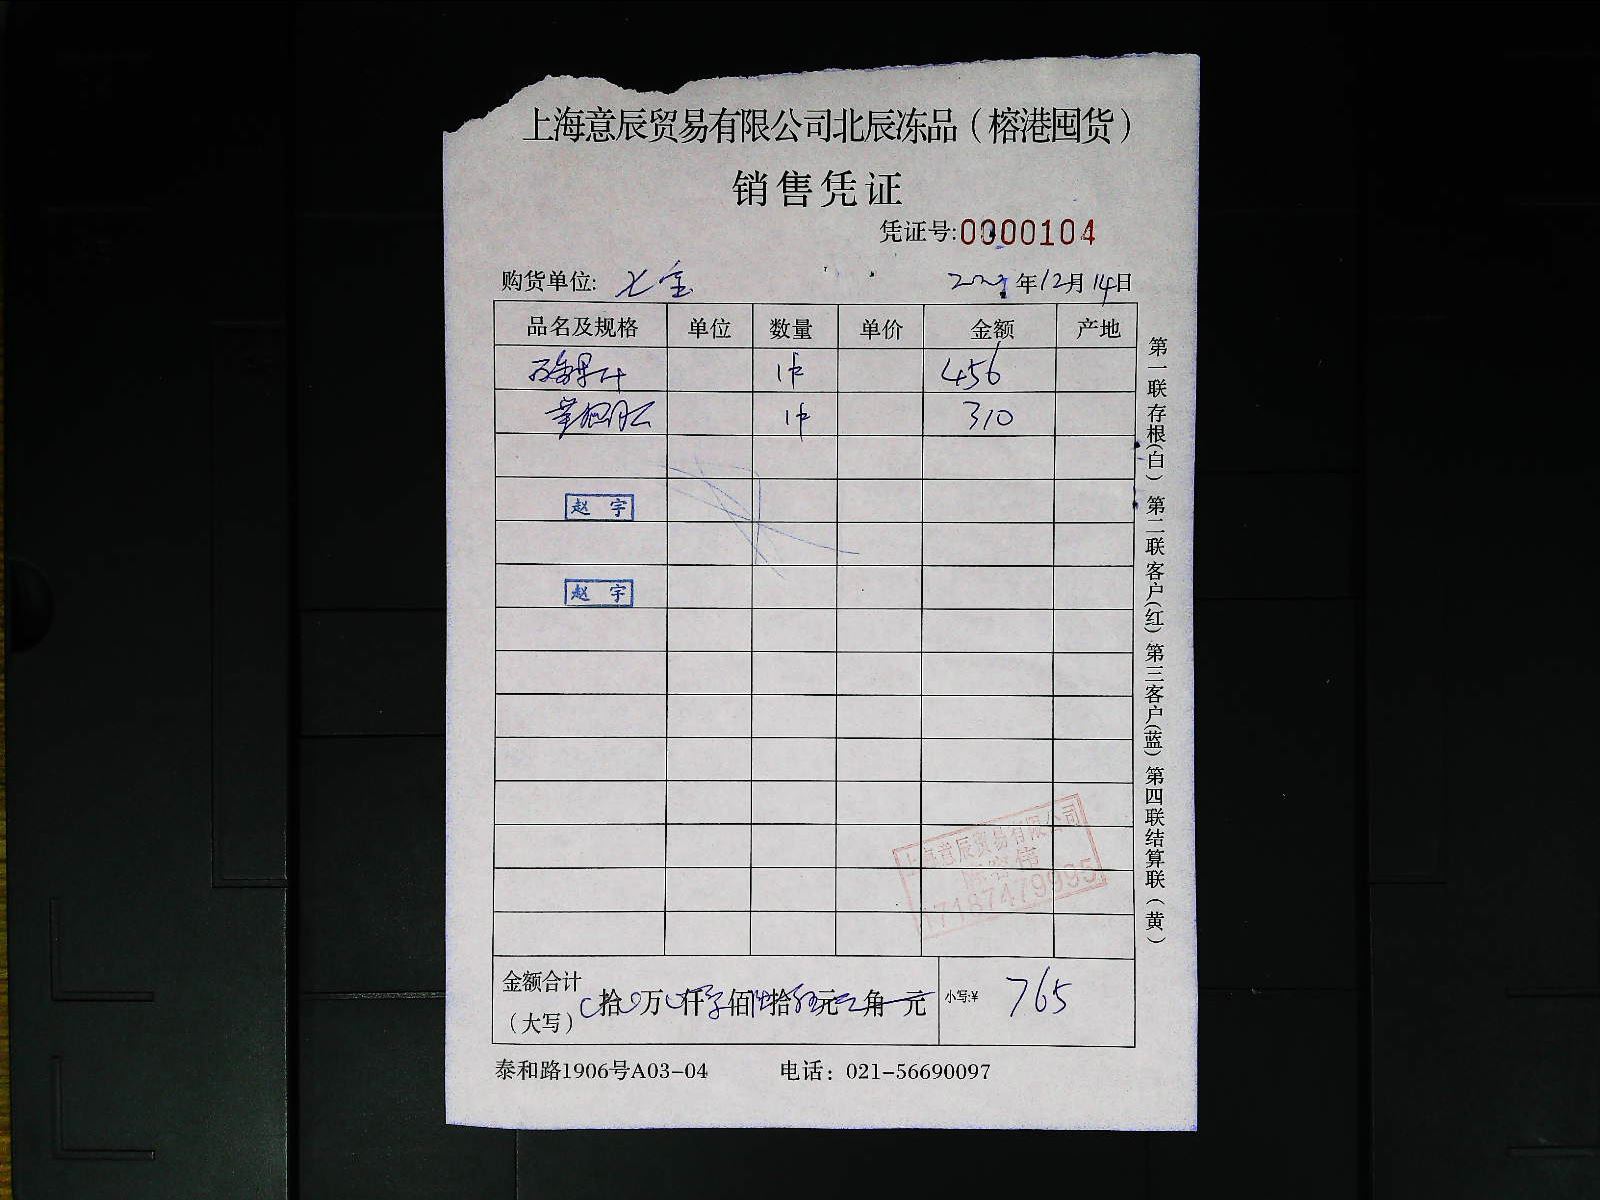 上海意辰贸易有限公司北辰冻品（榕港囤货）
销售凭证
凭证号:0000104
购货单位: 七宝 年12月14日
品名及规格 单位 数量 单价 金额 产地
1件 456
1件 310
赵 宇
赵 宇
上海意辰贸易有限公司
17187479995
金额合计（大写） 拾 万 仟 佰 拾 元 角 元 小写:¥ 765
泰和路1906号A03-04 电话：021-56690097
第一联存根(白) 第二联客户(红) 第三客户(蓝) 第四联结算联(黄)